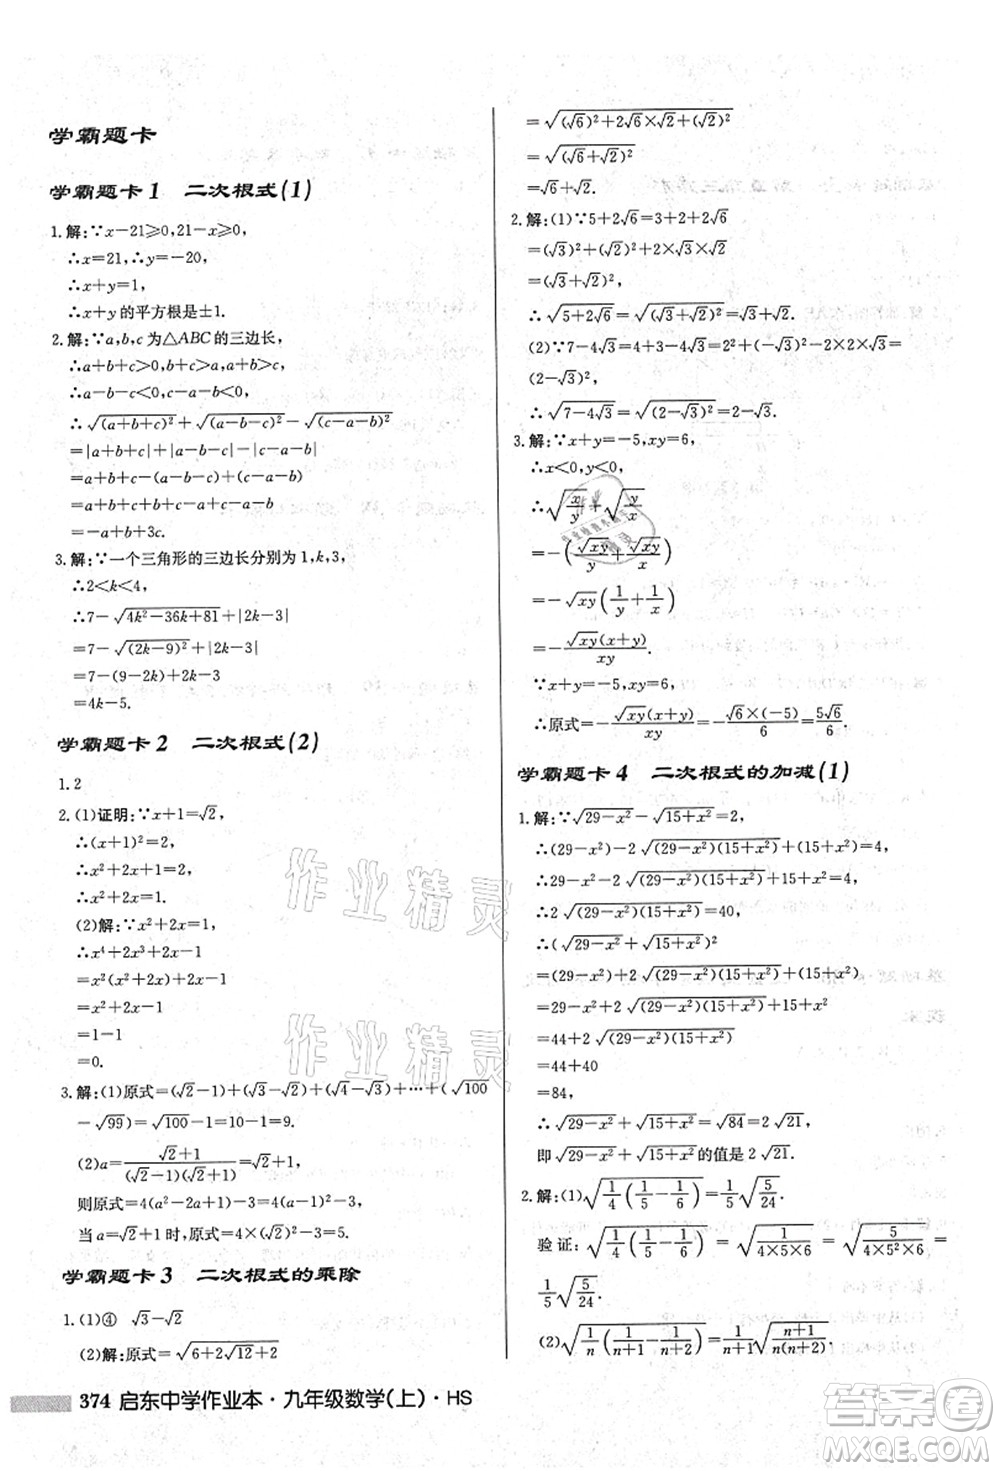 学霸题卡
学霸题卡1 二次根式(1)
1.解:∵x-21≥0,21-x≥0,
∴x=21,∴y=-20,
∴x+y=1,
∴x+y的平方根是±1.
2.解:∵a,b,c为△ABC的三边长,
∴a+b+c>0,b+c>a,a+b>c,
∴a-b-c<0,c-a-b<0,
∴√(a+b+c)²+√(a-b-c)²-√(c-a-b)²
=|a+b+c|+|a-b-c|-|c-a-b|
=a+b+c-a+b+c+c-a-b
=-a+b+3c.
3.解:∵一个三角形的三边长分别为1,k,3,
∴2<k<4,
∴7-√4k²-36k+81+|2k-3|
=7-√(2k-9)²+|2k-3|
=7-(9-2k)+(2k-3)
=4k-5.
学霸题卡2 二次根式(2)
1.2
2.(1)证明:∵x+1=√2,
∴(x+1)²=2,
∴x²+2x+1=2,
∴x²+2x=1.
(2)解:∵x²+2x=1,
∴x⁴+2x³+2x-1
=x²(x²+2x)+2x-1
=x²+2x-1
=1-1
=0.
3.解:(1)原式=(√2-1)+(√3-√2)+(√4-√3)+…+(√100
-√99)=√100-1=10-1=9.
(2)a=(√2+1)/((√2-1)(√2+1))=√2+1,
则原式=4(a²-2a+1)-3=4(a-1)²-3,
当a=√2+1时,原式=4×(√2)²-3=5.
学霸题卡3 二次根式的乘除
1.(1)④ √3-√2
(2)解:原式=√6+2√12+2
=√(√6)²+2√6×√2+(√2)²
=√(√6+√2)²
=√6+√2.
2.解:(1)∵5+2√6=3+2+2√6
=(√3)²+(√2)²+2×√3×√2
=(√3+√2)²,
∴√5+2√6=√(√3+√2)²=√3+√2.
(2)∵7-4√3=4+3-4√3=2²+(√3)²-2×2×√3=
(2-√3)²,
∴√7-4√3=√(2-√3)²=2-√3.
3.解:∵x+y=-5,xy=6,
∴x<0,y<0,
∴√(x/y)+√(y/x)
=-(√xy/y+√xy/x)
=-√xy(1/y+1/x)
=-√xy(x+y)/xy.
∵x+y=-5,xy=6,
∴原式=-√xy(x+y)/xy=-√6×(-5)/6=5√6/6.
学霸题卡4 二次根式的加减(1)
1.解:∵√29-x²-√15+x²=2,
∴(29-x²)-2√(29-x²)(15+x²)+(15+x²)=4,
∴2√(29-x²)(15+x²)=40,
∴(√29-x²+√15+x²)²
=(29-x²)+2√(29-x²)(15+x²)+(15+x²)
=29-x²+2√(29-x²)(15+x²)+15+x²
=44+2√(29-x²)(15+x²)
=44+40
=84,
∴√29-x²+√15+x²=√84=2√21,
即√29-x²+√15+x²的值是2√21.
2.解:(1)√(1/4(1/5-1/6))=1/5√(5/24).
验证:√(1/4(1/5-1/6))=√(1/(4×5×6))=√(5/(4×5²×6))=
1/5√(5/24).
(2)√(1/n(1/(n+1)-1/(n+2)))=1/(n+1)√((n+1)/(n(n+2))).
374 启东中学作业本·九年级数学(上)·HS
作业精灵
作业精灵
答案圈
MXQE.COM